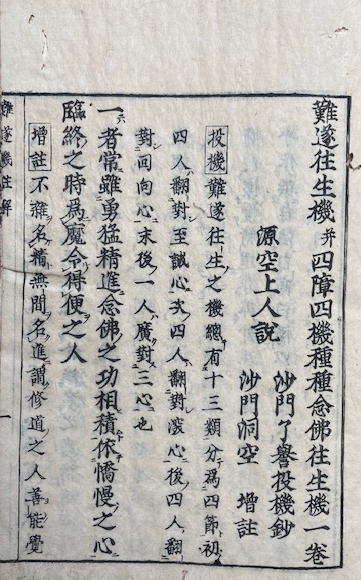 難遂往生機并四障四機種種念佛往生機一卷
沙門了譽投機鈔
源空上人説
沙門洞空 增註
投機難遂往生之機總有十三類分為四節初
四人翻對至誠心次四人翻對深心後四人翻
對回向心末後一人廣對三心也
一者常雖勇猛精進念佛之功相積依憍慢之心
臨終之時為魔令得便之人
增註不雜名精無間名進謂修道之人善能覺
難遂機註解
一